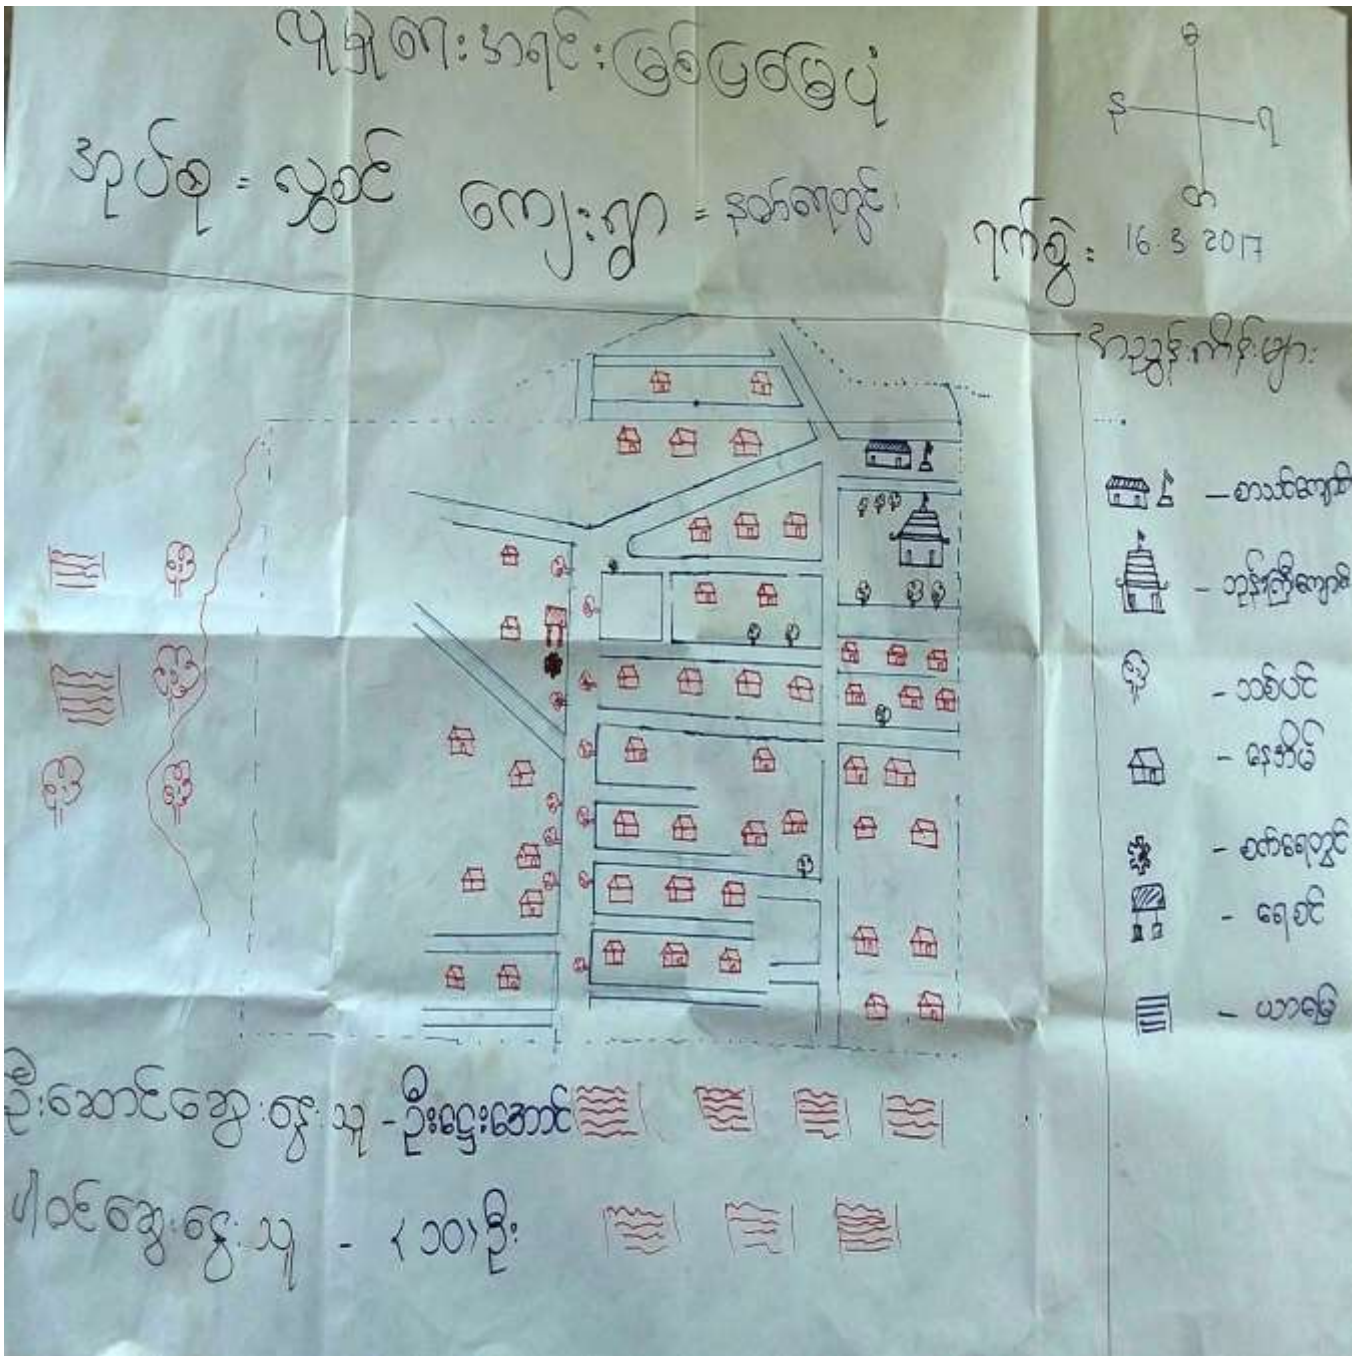 လူမှုရေးအရင်းမြစ်ပြမြေပုံ
မ
န
ရ
တ
အုပ်စု = လွှစင် ကျေးရွာ = နတ်ရေတွင်း
ရက်စွဲ = 16.3.2017
အညွှန်းကိန်းများ
– စာသင်ကျောင်း
– ဘုန်းကြီးကျောင်း
– သစ်ပင်
– နေအိမ်
– စက်ရေတွင်း
– ရေစင်
– ယာမြေ
ဦးဆောင်ဆွေးနွေးသူ – ဦးဌေးအောင်
ပါဝင်ဆွေးနွေးသူ – (၁၀) ဦး